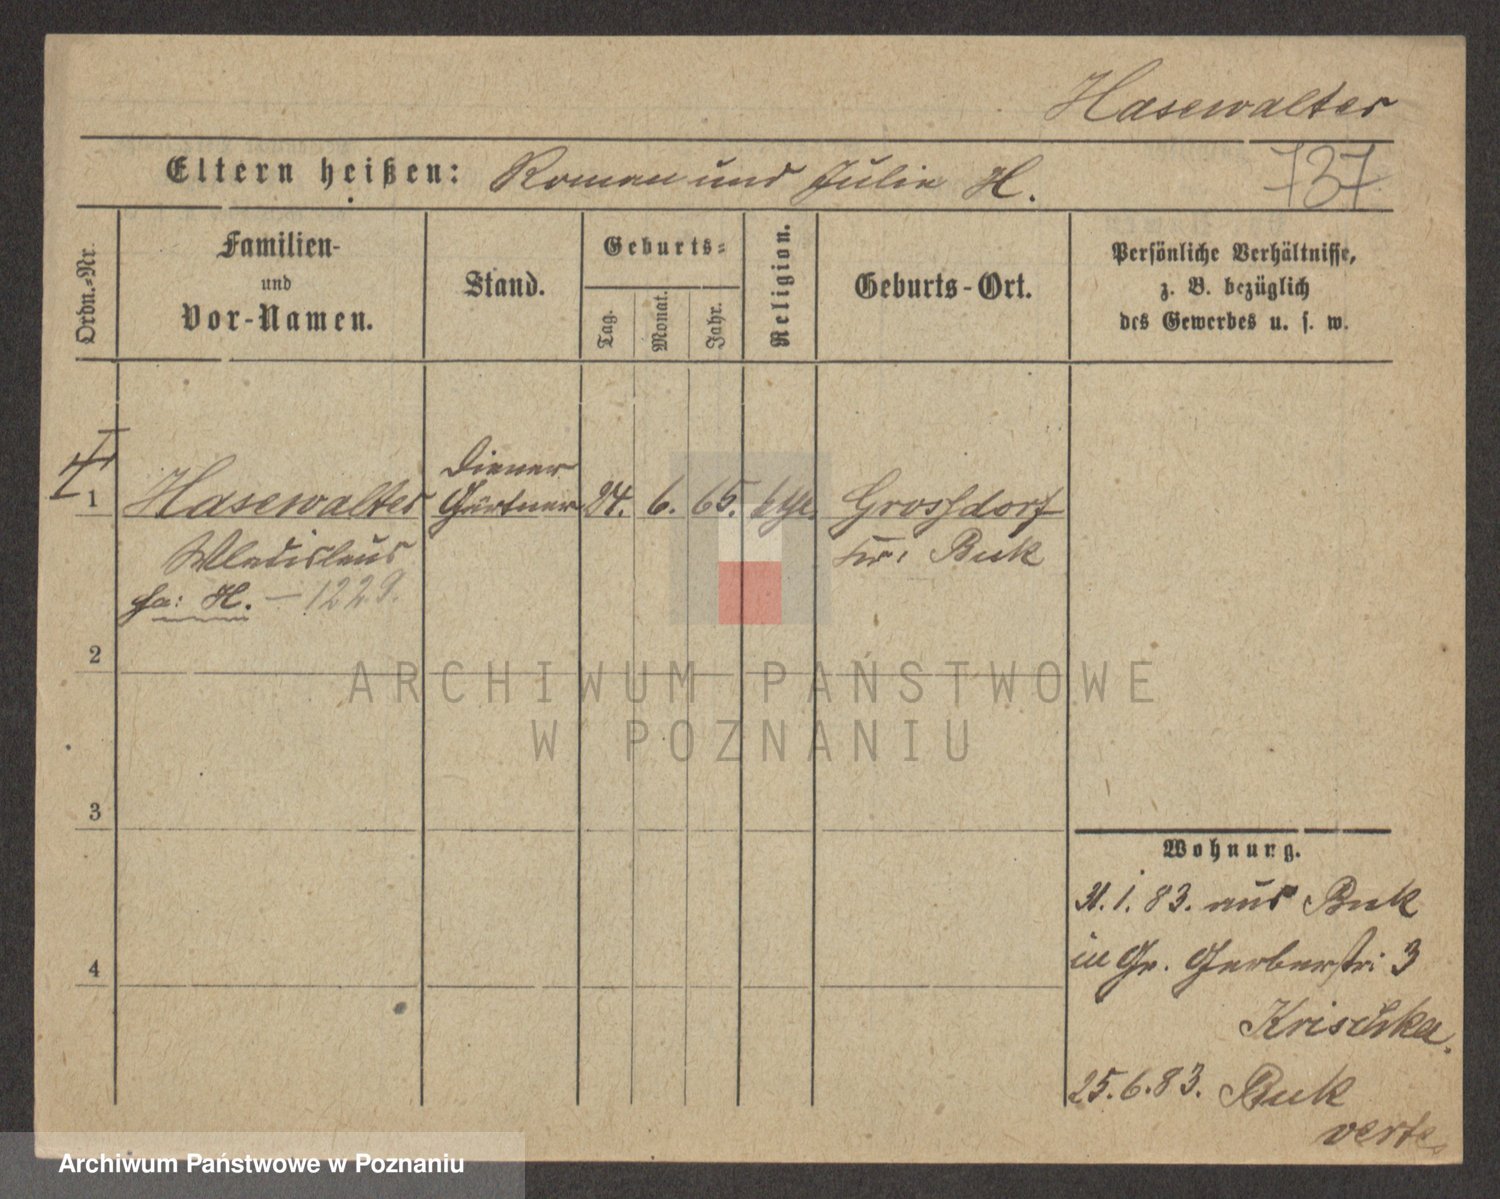 Hasewalter
Eltern heißen: Roman und Julie H.
737
Ordn.=Nr.
Familien-
und
Vor-Namen.
Stand.
Geburts=
Tag.
Monat.
Jahr.
Religion.
Geburts-Ort.
Persönliche Verhältnisse,
z. B. bezüglich
des Gewerbes u. s. w.
1
Hasewalter
Wladislaus
H. - 1229.
Diener
Gärtner
24. 6. 65.
Grossdorf
Kr: Buk
2
3
4
Wohnung.
31. 1. 83. aus Buk
in Gr. Gerberstr: 3
Krischka.
25. 6. 83. Buk
verte
ARCHIWUM PAŃSTWOWE
W POZNANIU
Archiwum Państwowe w Poznaniu